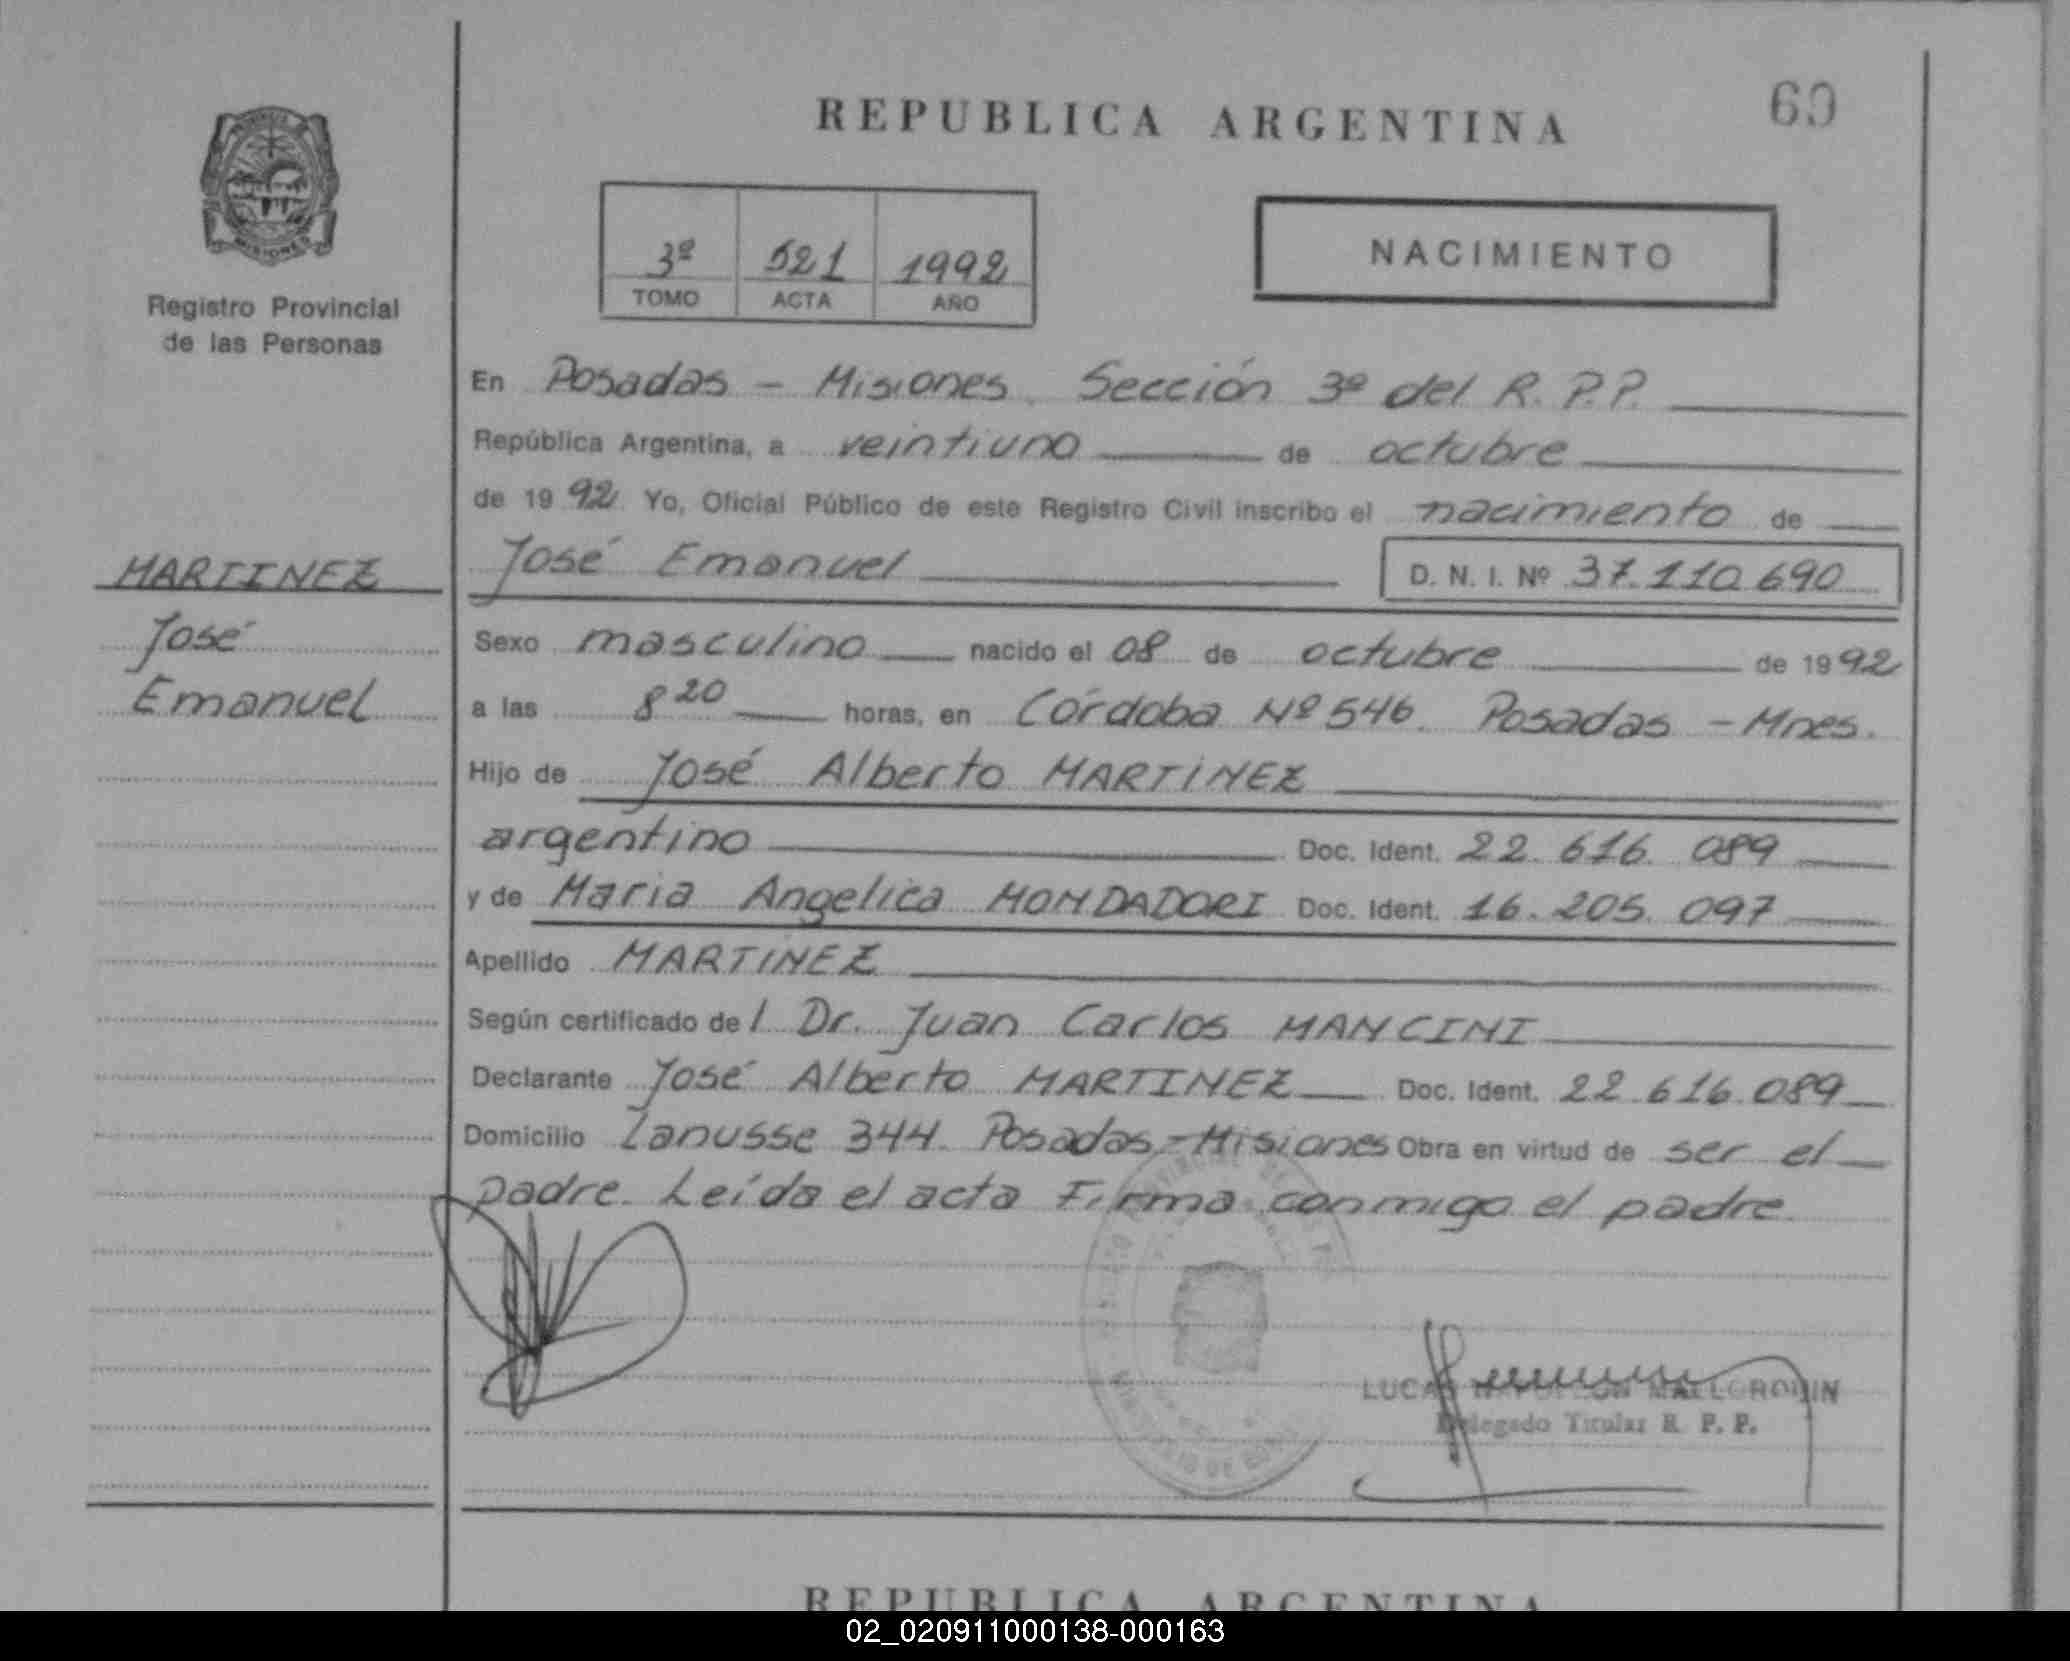 REPUBLICA ARGENTINA
69
MISIONES
Registro Provincial
de las Personas
3º 521 1992
TOMO ACTA AÑO
NACIMIENTO
En Posadas - Misiones. Sección 3º del R.P.P.
República Argentina, a veintiuno de octubre
de 1992. Yo, Oficial Público de este Registro Civil inscribo el nacimiento de
MARTINEZ
José
Emanuel
José Emanuel D.N.I. Nº 37.110.690
Sexo masculino nacido el 08 de octubre de 1992
a las 8 20 horas, en Córdoba Nº 546. Posadas - Mnes.
Hijo de José Alberto MARTINEZ
argentino Doc. Ident. 22.616.089
y de Maria Angelica MONDADORI Doc. Ident. 16.205.097
Apellido MARTINEZ
Según certificado del Dr. Juan Carlos MANCINI
Declarante José Alberto MARTINEZ Doc. Ident. 22.616.089
Domicilio Lanusse 344. Posadas - Misiones Obra en virtud de ser el
padre. Leída el acta Firma conmigo el padre.
LUCAS NAPOLEON MALLORQUIN
Delegado Titular R. P. P.
REPUBLICA ARGENTINA
02_020911000138-000163